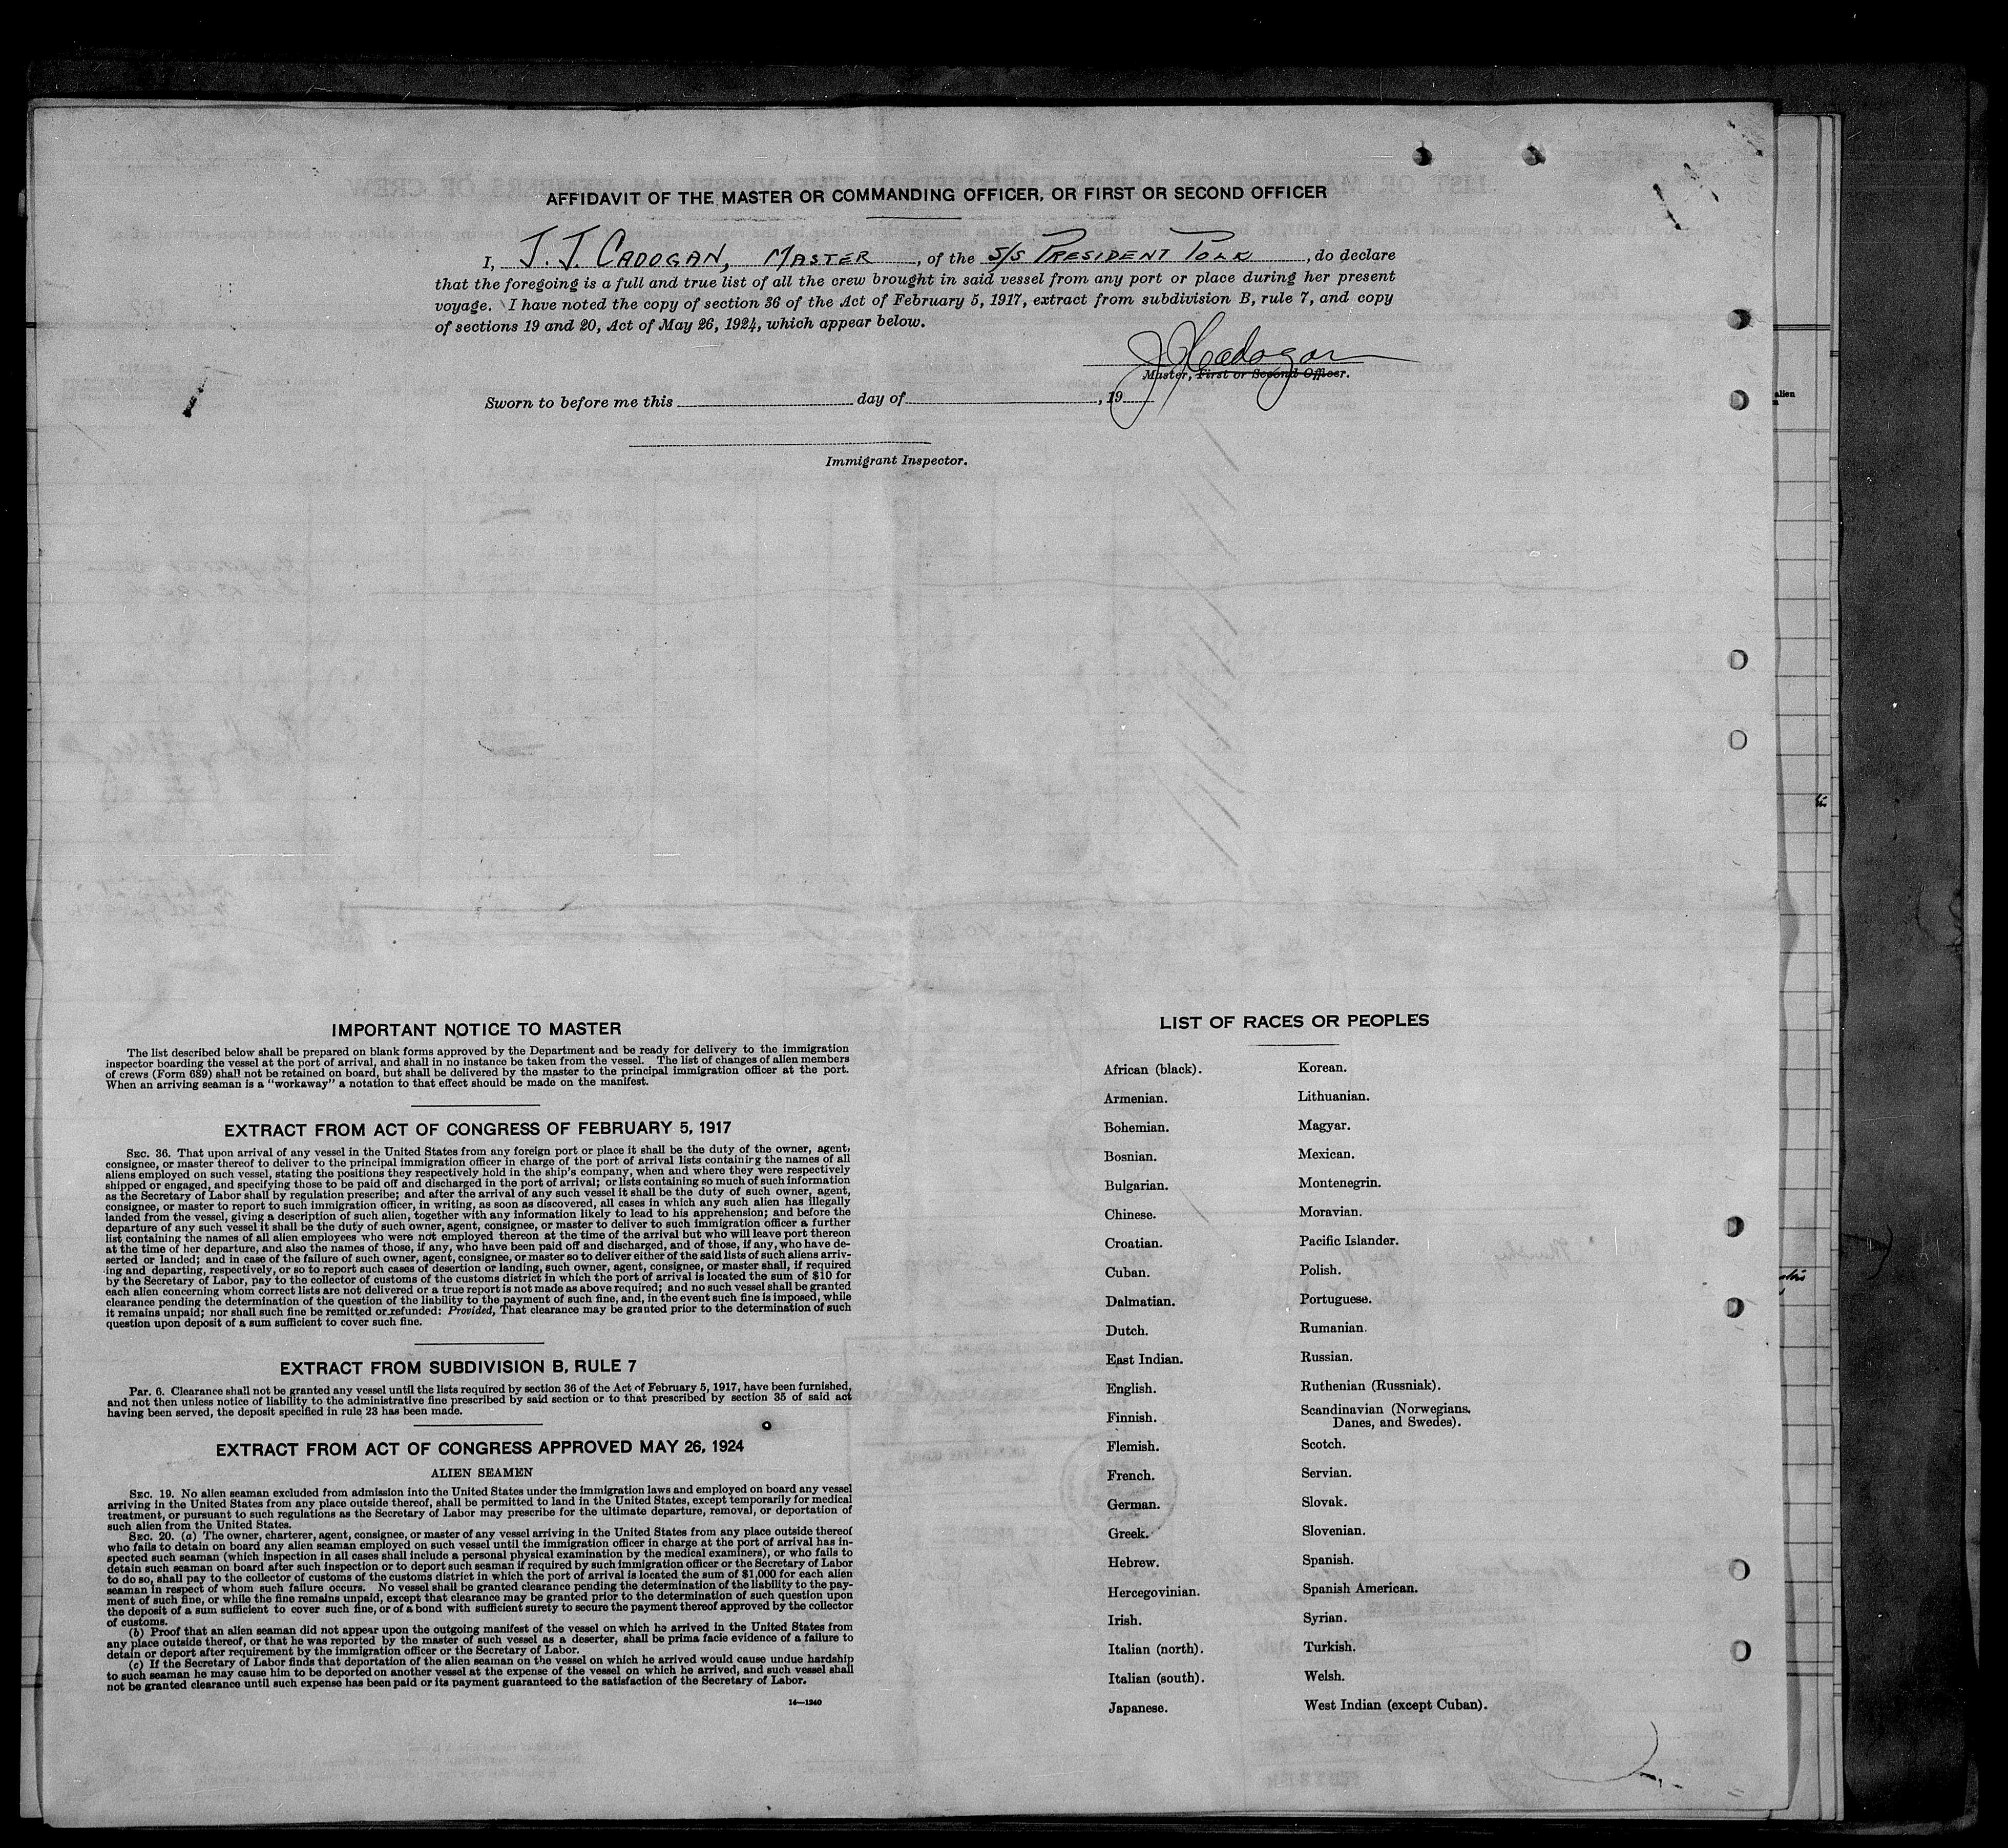 AFFIDAVIT OF THE MASTER OR COMMANDING OFFICER, OR FIRST OR SECOND OFFICER
I, J. J. CADOGAN, MASTER, of the S/S PRESIDENT POLK, do declare
that the foregoing is a full and true list of all the crew brought in said vessel from any port or place during her present
voyage. I have noted the copy of section 36 of the Act of February 5, 1917, extract from subdivision B, rule 7, and copy
of sections 19 and 20, Act of May 26, 1924, which appear below.
J J Cadogan
Master, First or Second Officer.
Sworn to before me this day of , 19
Immigrant Inspector.
IMPORTANT NOTICE TO MASTER
The list described below shall be prepared on blank forms approved by the Department and be ready for delivery to the immigration
inspector boarding the vessel at the port of arrival, and shall in no instance be taken from the vessel. The list of changes of alien members
of crews (Form 689) shall not be retained on board, but shall be delivered by the master to the principal immigration officer at the port.
When an arriving seaman is a "workaway" a notation to that effect should be made on the manifest.
EXTRACT FROM ACT OF CONGRESS OF FEBRUARY 5, 1917
SEC. 36. That upon arrival of any vessel in the United States from any foreign port or place it shall be the duty of the owner, agent,
consignee, or master thereof to deliver to the principal immigration officer in charge of the port of arrival lists containing the names of all
aliens employed on such vessel, stating the positions they respectively hold in the ship's company, when and where they were respectively
shipped or engaged, and specifying those to be paid off and discharged in the port of arrival; or lists containing so much of such information
as the Secretary of Labor shall by regulation prescribe; and after the arrival of any such vessel it shall be the duty of such owner, agent,
consignee, or master to report to such immigration officer, in writing, as soon as discovered, all cases in which any such alien has illegally
landed from the vessel, giving a description of such alien, together with any information likely to lead to his apprehension; and before the
departure of any such vessel it shall be the duty of such owner, agent, consignee, or master to deliver to such immigration officer a further
list containing the names of all alien employees who were not employed thereon at the time of the arrival but who will leave port thereon
at the time of her departure, and also the names of those, if any, who have been paid off and discharged, and of those, if any, who have de-
serted or landed; and in case of the failure of such owner, agent, consignee, or master so to deliver either of the said lists of such aliens arriv-
ing and departing, respectively, or so to report such cases of desertion or landing, such owner, agent, consignee, or master shall, if required
by the Secretary of Labor, pay to the collector of customs of the customs district in which the port of arrival is located the sum of $10 for
each alien concerning whom correct lists are not delivered or a true report is not made as above required; and no such vessel shall be granted
clearance pending the determination of the question of the liability to the payment of such fine, and, in the event such fine is imposed, while
it remains unpaid; nor shall such fine be remitted or refunded: Provided, That clearance may be granted prior to the determination of such
question upon deposit of a sum sufficient to cover such fine.
EXTRACT FROM SUBDIVISION B, RULE 7
Par. 6. Clearance shall not be granted any vessel until the lists required by section 36 of the Act of February 5, 1917, have been furnished,
and not then unless notice of liability to the administrative fine prescribed by said section or to that prescribed by section 35 of said act
having been served, the deposit specified in rule 23 has been made.
EXTRACT FROM ACT OF CONGRESS APPROVED MAY 26, 1924
ALIEN SEAMEN
SEC. 19. No alien seaman excluded from admission into the United States under the immigration laws and employed on board any vessel
arriving in the United States from any place outside thereof, shall be permitted to land in the United States, except temporarily for medical
treatment, or pursuant to such regulations as the Secretary of Labor may prescribe for the ultimate departure, removal, or deportation of
such alien from the United States.
SEC. 20. (a) The owner, charterer, agent, consignee, or master of any vessel arriving in the United States from any place outside thereof
who fails to detain on board any alien seaman employed on such vessel until the immigration officer in charge at the port of arrival has in-
spected such seaman (which inspection in all cases shall include a personal physical examination by the medical examiners), or who fails to
detain such seaman on board after such inspection or to deport such seaman if required by such immigration officer or the Secretary of Labor
to do so, shall pay to the collector of customs of the customs district in which the port of arrival is located the sum of $1,000 for each alien
seaman in respect of whom such failure occurs. No vessel shall be granted clearance pending the determination of the liability to the pay-
ment of such fine, or while the fine remains unpaid, except that clearance may be granted prior to the determination of such question upon
the deposit of a sum sufficient to cover such fine, or of a bond with sufficient surety to secure the payment thereof approved by the collector
of customs.
(b) Proof that an alien seaman did not appear upon the outgoing manifest of the vessel on which he arrived in the United States from
any place outside thereof, or that he was reported by the master of such vessel as a deserter, shall be prima facie evidence of a failure to
detain or deport after requirement by the immigration officer or the Secretary of Labor.
(c) If the Secretary of Labor finds that deportation of the alien seaman on the vessel on which he arrived would cause undue hardship
to such seaman he may cause him to be deported on another vessel at the expense of the vessel on which he arrived, and such vessel shall
not be granted clearance until such expense has been paid or its payment guaranteed to the satisfaction of the Secretary of Labor.
14—1240
LIST OF RACES OR PEOPLES
African (black). Korean.
Armenian. Lithuanian.
Bohemian. Magyar.
Bosnian. Mexican.
Bulgarian. Montenegrin.
Chinese. Moravian.
Croatian. Pacific Islander.
Cuban. Polish.
Dalmatian. Portuguese.
Dutch. Rumanian.
East Indian. Russian.
English. Ruthenian (Russniak).
Finnish. Scandinavian (Norwegians,
Danes, and Swedes).
Flemish. Scotch.
French. Servian.
German. Slovak.
Greek. Slovenian.
Hebrew. Spanish.
Hercegovinian. Spanish American.
Irish. Syrian.
Italian (north). Turkish.
Italian (south). Welsh.
Japanese. West Indian (except Cuban).
alien